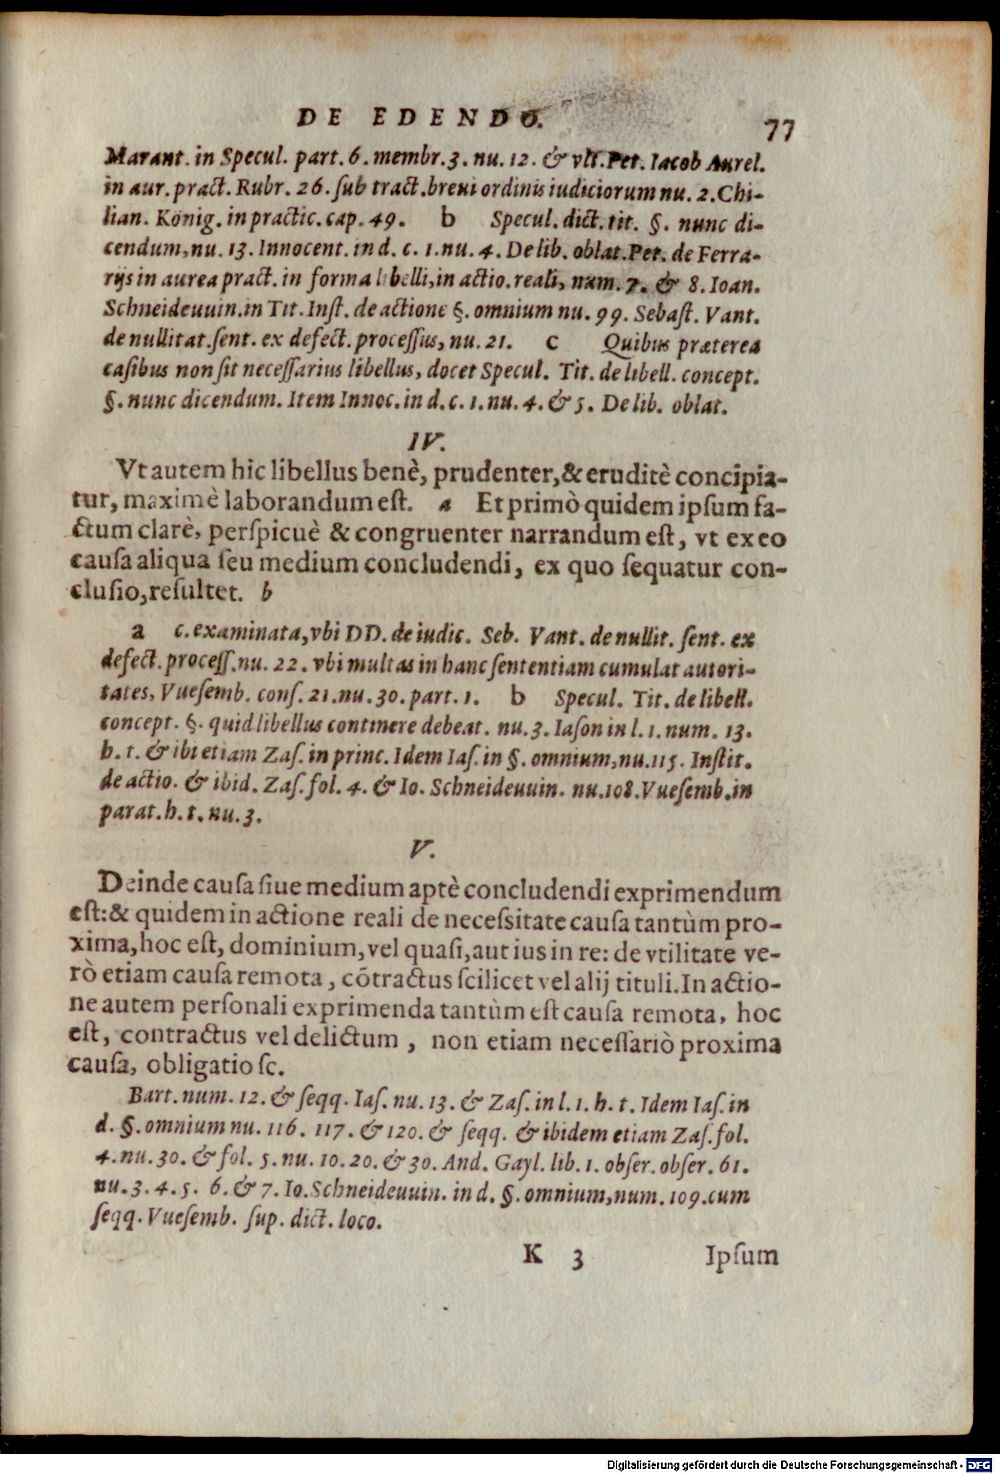 DE EDENDO. 77
Marant. in Specul. part. 6. membr. 3. nu. 12. & vlt. Pet. Iacob Aurel.
in aur. pract. Rubr. 26. ſub tract. breui ordinis iudiciorum nu. 2. Chi-
lian. König. in practic. cap. 49. b Specul. dict. tit. §. nunc di-
cendum, nu. 13. Innocent. in d. c. 1. nu. 4. De lib. oblat. Pet. de Ferra-
rijs in aurea pract. in forma libelli, in actio. reali, num. 7. & 8. Ioan.
Schneideuuin. in Tit. Inſt. de actione §. omnium nu. 99. Sebaſt. Vant.
de nullitat. ſent. ex defect. proceſſus, nu. 21. c Quibus præterea
caſibus non ſit neceſſarius libellus, docet Specul. Tit. de libell. concept.
§. nunc dicendum. Item Innoc. in d. c. 1. nu. 4. & 5. De lib. oblat.
IV.
Vt autem hic libellus benè, prudenter, & eruditè concipia-
tur, maximè laborandum eſt. a Et primò quidem ipſum fa-
ctum clarè, perſpicuè & congruenter narrandum eſt, vt ex eo
cauſa aliqua ſeu medium concludendi, ex quo ſequatur con-
cluſio, reſultet. b
a c. examinata, vbi DD. de iudic. Seb. Vant. de nullit. ſent. ex
defect. proceſſ. nu. 22. vbi multas in hanc ſententiam cumulat autori-
tates, Vueſemb. conſ. 21. nu. 30. part. 1. b Specul. Tit. de libell.
concept. §. quid libellus continere debeat. nu. 3. Iaſon in l. 1. num. 13.
h. t. & ibi etiam Zaſ. in princ. Idem Iaſ. in §. omnium, nu. 115. Inſtit.
de actio. & ibid. Zaſ. fol. 4. & Io. Schneideuuin. nu. 108. Vueſemb. in
parat. h. t. nu. 3.
V.
Deinde cauſa ſiue medium aptè concludendi exprimendum
eſt: & quidem in actione reali de neceſsitate cauſa tantùm pro-
xima, hoc eſt, dominium, vel quaſi, aut ius in re: de vtilitate ve-
rò etiam cauſa remota, cõtractus ſcilicet vel alij tituli. In actio-
ne autem perſonali exprimenda tantùm eſt cauſa remota, hoc
eſt, contractus vel delictum, non etiam neceſſariò proxima
cauſa, obligatio ſc.
Bart. num. 12. & ſeqq. Iaſ. nu. 13. & Zaſ. in l. 1. h. t. Idem Iaſ. in
d. §. omnium nu. 116. 117. & 120. & ſeqq. & ibidem etiam Zaſ. fol.
4. nu. 30. & fol. 5. nu. 10. 20. & 30. And. Gayl. lib. 1. obſer. obſer. 61.
nu. 3. 4. 5. 6. & 7. Io. Schneideuuin. in d. §. omnium, num. 109. cum
ſeqq. Vueſemb. ſup. dict. loco.
K 3 Ipſum
Digitalisierung gefördert durch die Deutsche Forschungsgemeinschaft - DFG